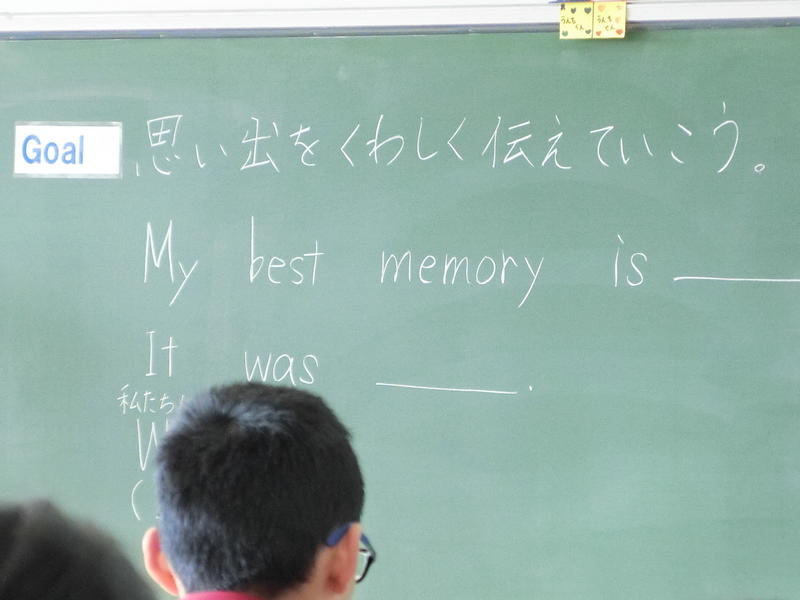 Goal 思い出をくわしく伝えていこう。
My best memory is
It was .
私たち
W
(